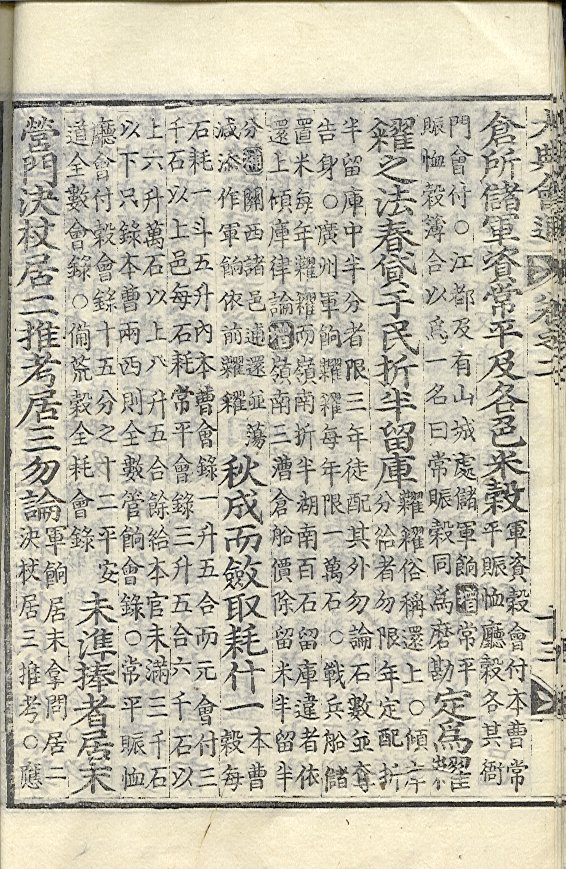 大典會通 卷之二 十三
倉所儲軍資常平及各邑米穀
軍資穀會付本曹常
平賑恤廳穀各其衙
門會付○江都及有山城處儲軍餉增常平
賑恤穀簿合以爲一名曰常賑穀同爲磨勘
定爲糶
糴之法春貸于民折半留庫
糶糴俗稱還上○傾庫
分給者勿限年定配折
半留庫中半分者限三年徒配其外勿論石數並奪
告身○廣州軍餉糶糴每年限一萬石○戰兵船儲
置米每年糶糴而嶺南折半湖南百石留庫違者依
還上傾庫律論增嶺南三漕倉船價除留米半留半
分補關西諸邑逋還並蕩
減添作軍餉依前糶糴
秋成而斂取耗什一
本曹
穀每
石耗一斗五升內本曹會錄一升五合而元會付三
千石以上邑每石耗常平會錄三升五合六千石以
上六升萬石以上八升五合餘給本官未滿三千石
以下只錄本曹兩西則全數管餉會錄○常平賑恤
廳會付穀會錄十五分之十三平安
道全數會錄○備荒穀全耗會錄
未準捧者居末
營門決杖居二推考居三勿論
軍餉居末拿問居二
決杖居三推考○應